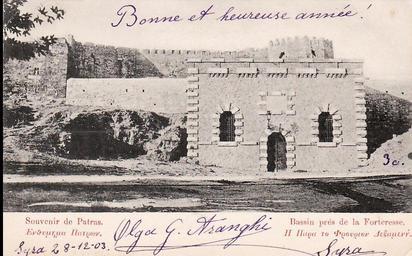 Bonne et heureuse année!
3c.
Souvenir de Patras.
Ενθύμημα Πατρῶν.
Syra 28-12-03.
Olga G. Nranghi
Bassin près de la Forteresse.
Η Παρα το Φρουριον Δεξαμενή.
Syra